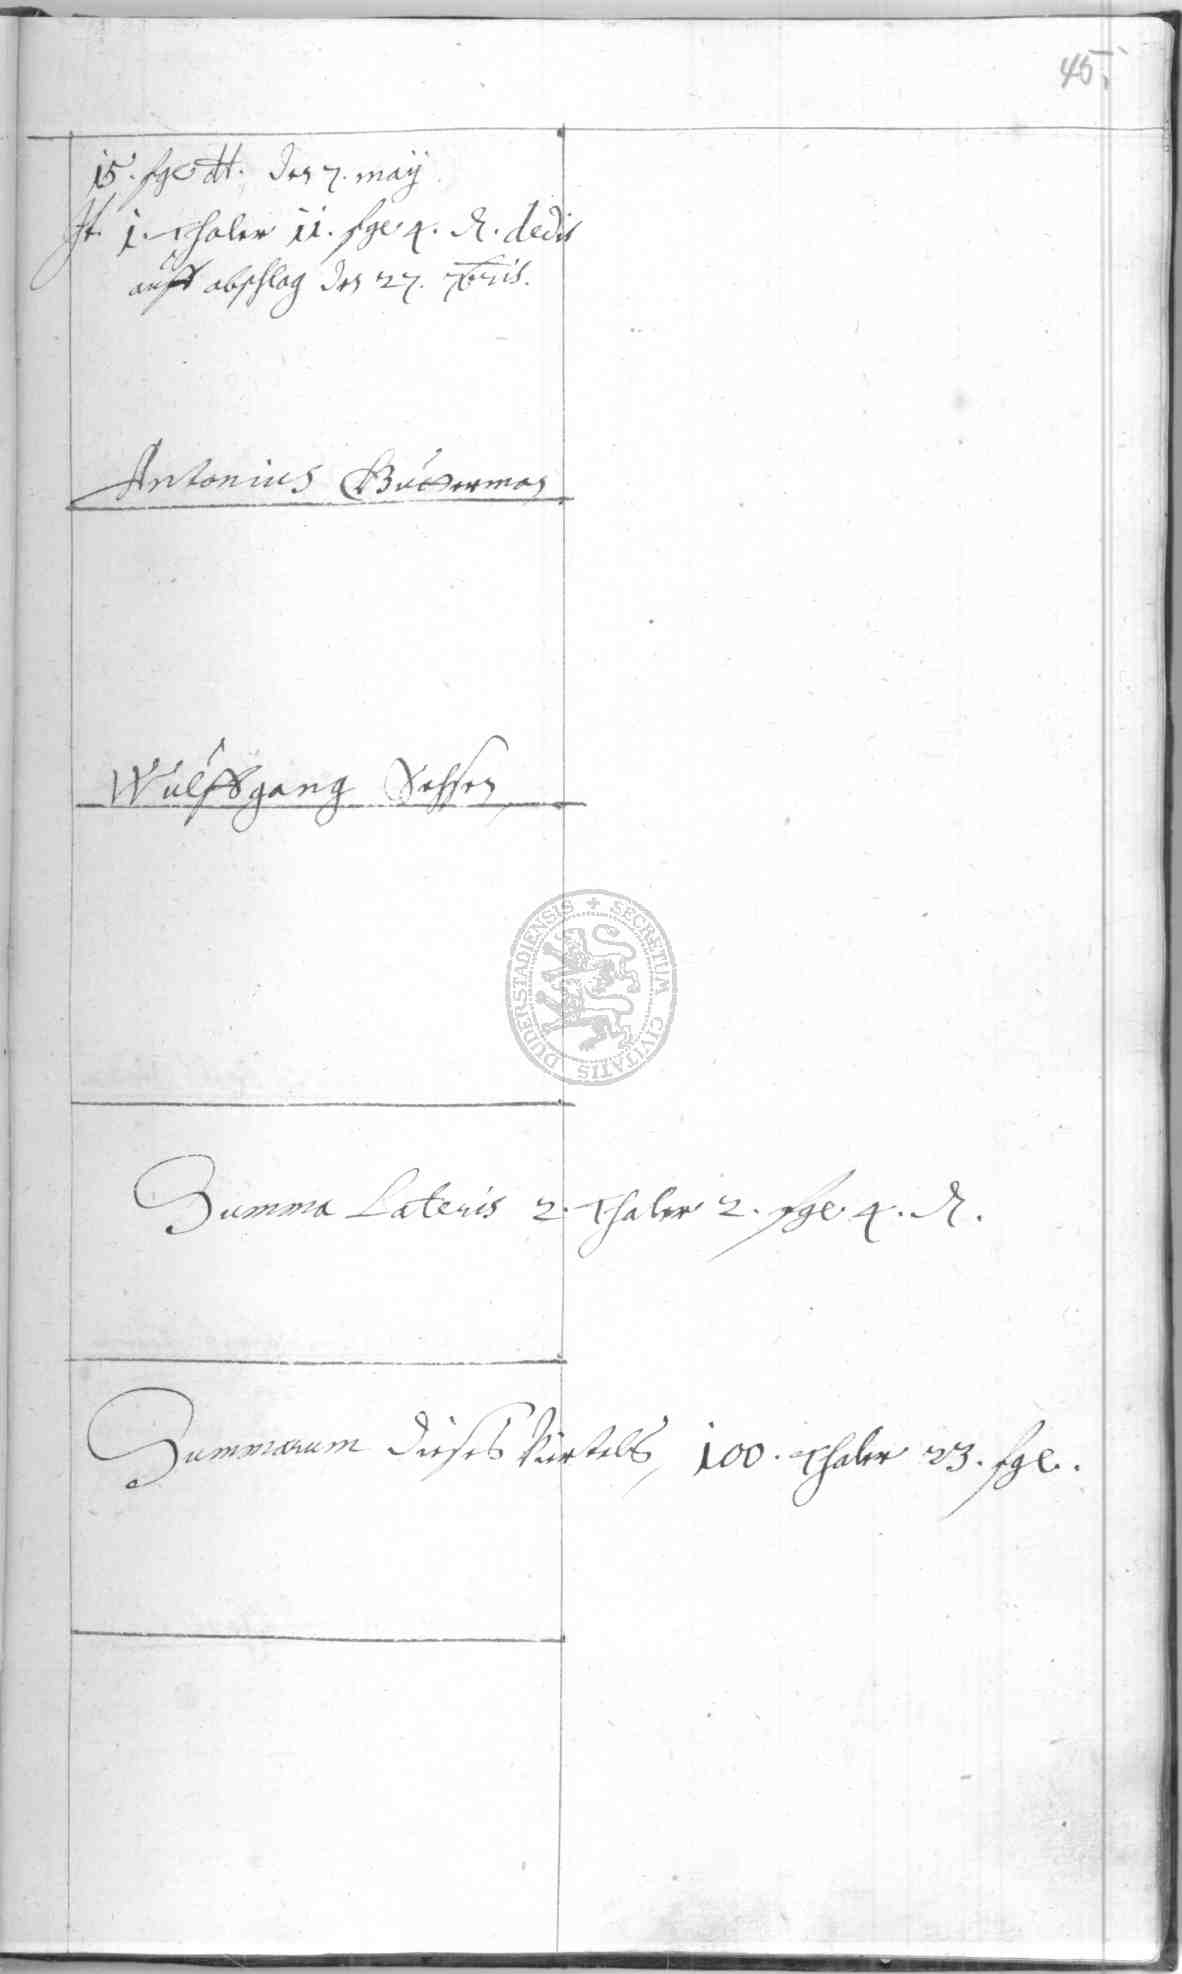 45.
15. sgl dt. den 7. maÿ
It. 1. Thaler 11. sgl 4. d. dedit
auff abschlag den 27. Xbris.
Antonius
Wulffgang
SECRETUM CIVITATIS DUDERSTADIENSIS
Summa Lateris 2. Thaler 2. sgl 4. d.
Summarum dieses Viertels 100. Thaler 23. sgl.